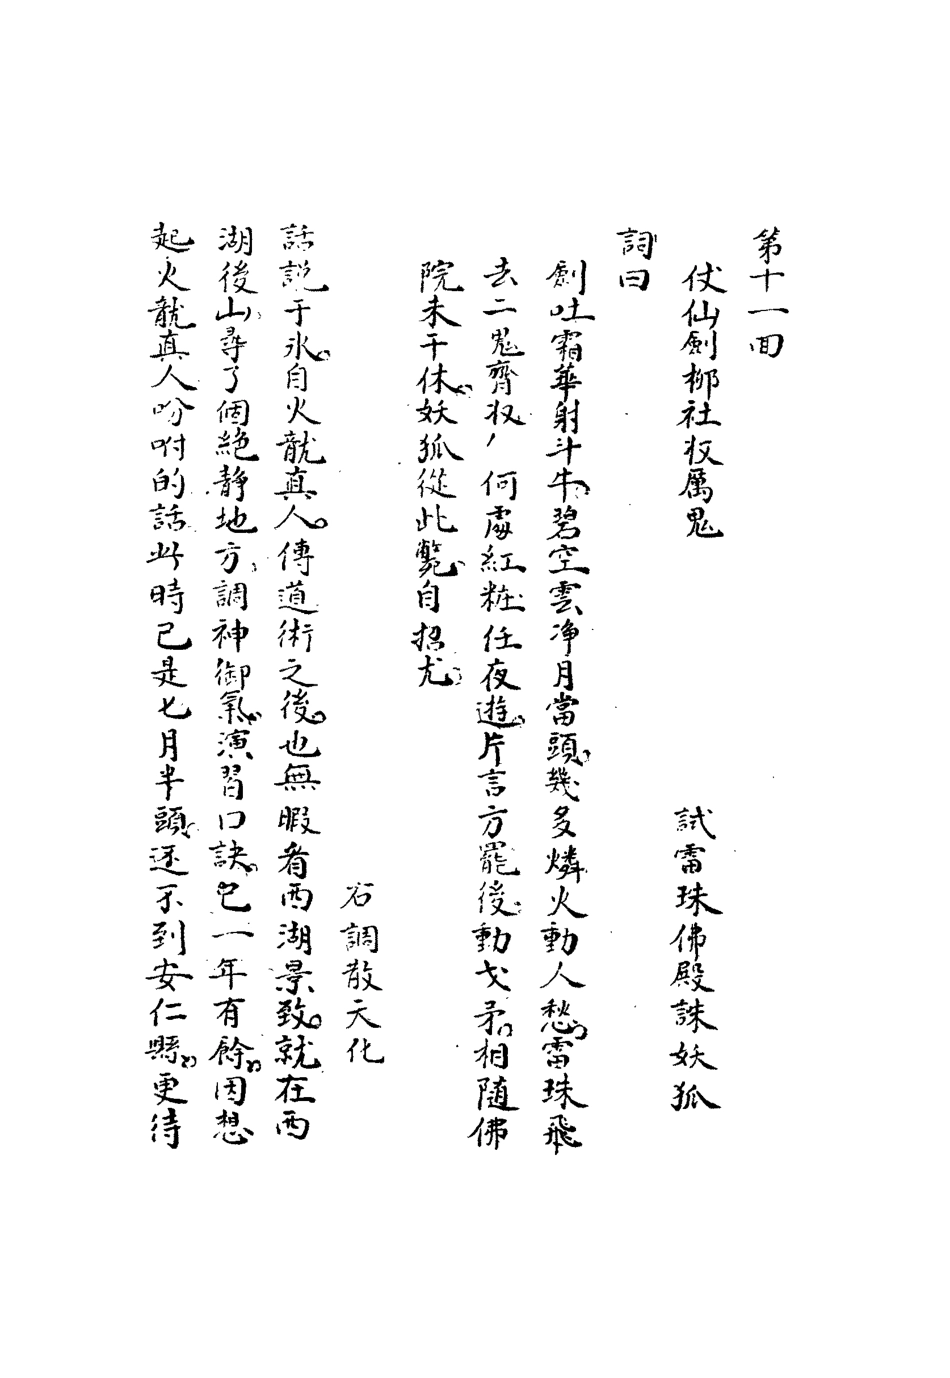 第十一回
仗仙劍柳社收厲鬼　試雷珠佛殿誅妖狐
詞曰
劍吐霜華射斗牛碧空雲净月當頭幾多燐火動人愁雷珠飛
去二鬼齊收　何處紅粧任夜遊片言方罷後動戈矛相隨佛
院未干休妖狐從此斃自招尤
右調散天化
話説于氷自火龍真人傳道術之後也無暇看西湖景致就在西
湖後山尋了個絶靜地方調神御氣演習口訣已一年有餘因想
起火龍真人吩咐的話此時已是七月半頭还不到安仁縣更待